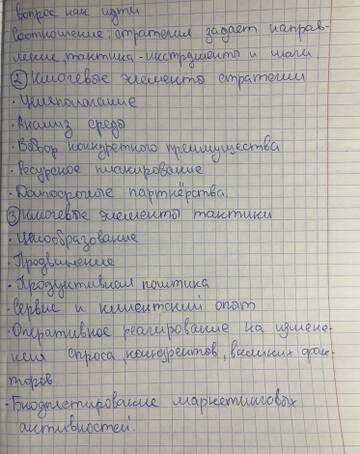 вопрос как идти
Соотношение: стратегия задает направ-
ление, тактика - инструменты и шаги
② Ключевые элементы стратегии
· Целеполагание
· Анализ среды
· Выбор конкретного преимущества
· Ресурсное планирование
· Долгосрочные партнёрства.
③ Ключевые элементы тактики
· Ценообразование
· Продвижение
· Продуктивная политика
· Сервис и клиентский опыт
· Оперативное реагирование на измене-
ния спроса, конкурентов, внешних фак-
торов
· Бюджетирование маркетинговых
активностей.